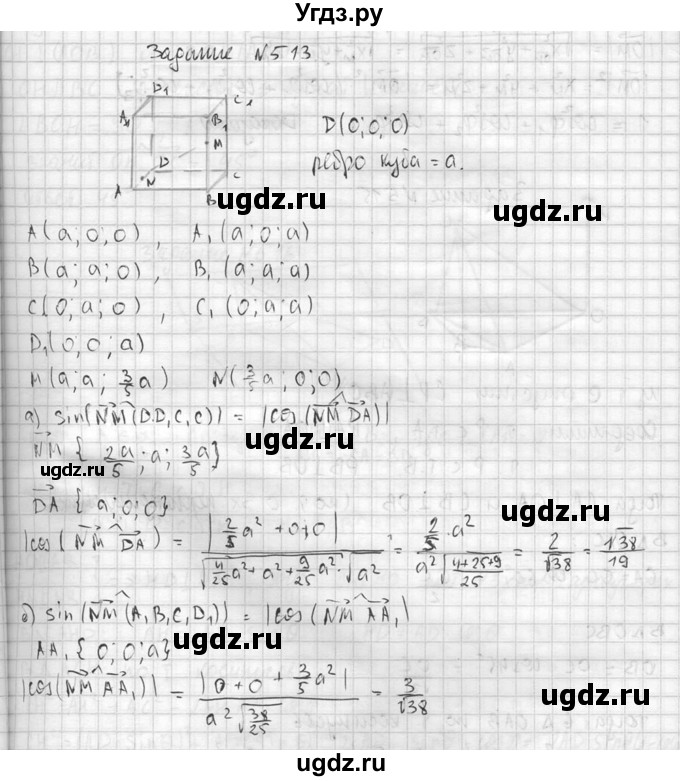 Угдз.ру
Задание №513
D1 C1
A1 B1
M
D
N C
A B
D(0;0;0)
ребро куба = a.
ugdz.ru ugdz.ru
A(a;0;0), A1(a;0;a)
B(a;a;0), B1(a;a;a)
C(0;a;0), C1(0;a;a)
D1(0;0;a)
M(a;a;3/5a) N(3/5a;0;0)
а) sin(NM^(DD1C1C)) = |cos(NM^DA)|
NM{2a/5; a; 3a/5}
ugdz.ru ugdz.ru
DA{a;0;0}
|cos(NM^DA)| = |2/5a²+0+0| / √(4/25a²+a²+9/25a²)·√a² = 2/5·a² / a²√((4+25+9)/25) = 2/√38 = √38/19
б) sin(NM^(A1B1C1D1)) = |cos(NM^AA1)|
AA1{0;0;a}
ugdz.ru
|cos(NM^AA1)| = |0+0+3/5a²| / a²√(38/25) = 3/√38
ugdz.ru
ugdz.ru